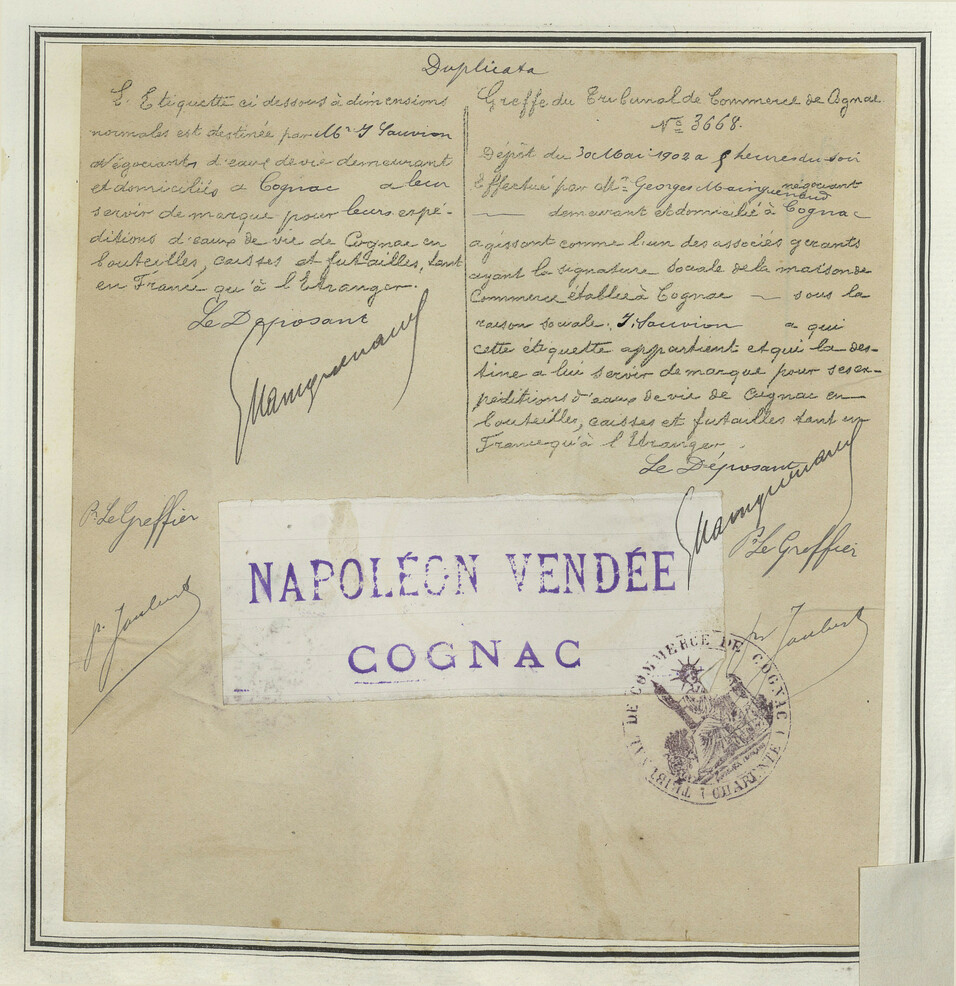 Duplicata
L'Etiquette ci dessous à dimensions
normales est destinée par Mr J Sauvion
Négociants d'eaux de vie demeurant
et domiciliés a Cognac a leur
servir de marque pour leurs expé-
ditions d'eaux de vie de Cognac en
bouteilles, caisses et futailles, tant
en France qu'à l'Etranger.
Le Déposant
Mainguenaud
Pr Le Greffier
pr Joubert
Greffe du Tribunal de Commerce de Cognac
No 3668.
Dépôt du 30 Mai 1902 a heures du soir
Effectué par Mr Georges Mainguenaud négociant
demeurant et domicilié à Cognac
agissant comme l'un des associés gerants
ayant la signature sociale de la maison de
Commerce établie à Cognac — sous la
raison sociale. J. Sauvion a qui
cette étiquette appartient et qui la des-
tine a lui servir de marque pour ses ex-
péditions d'eaux de vie de Cognac en
bouteilles, caisses et futailles tant en
France qu'à l'Etranger.
Le Déposant
Mainguenaud
Pr Le Greffier
pr Joubert
NAPOLÉON VENDÉE
COGNAC
TRIBUNAL DE COMMERCE DE COGNAC (CHARENTE)